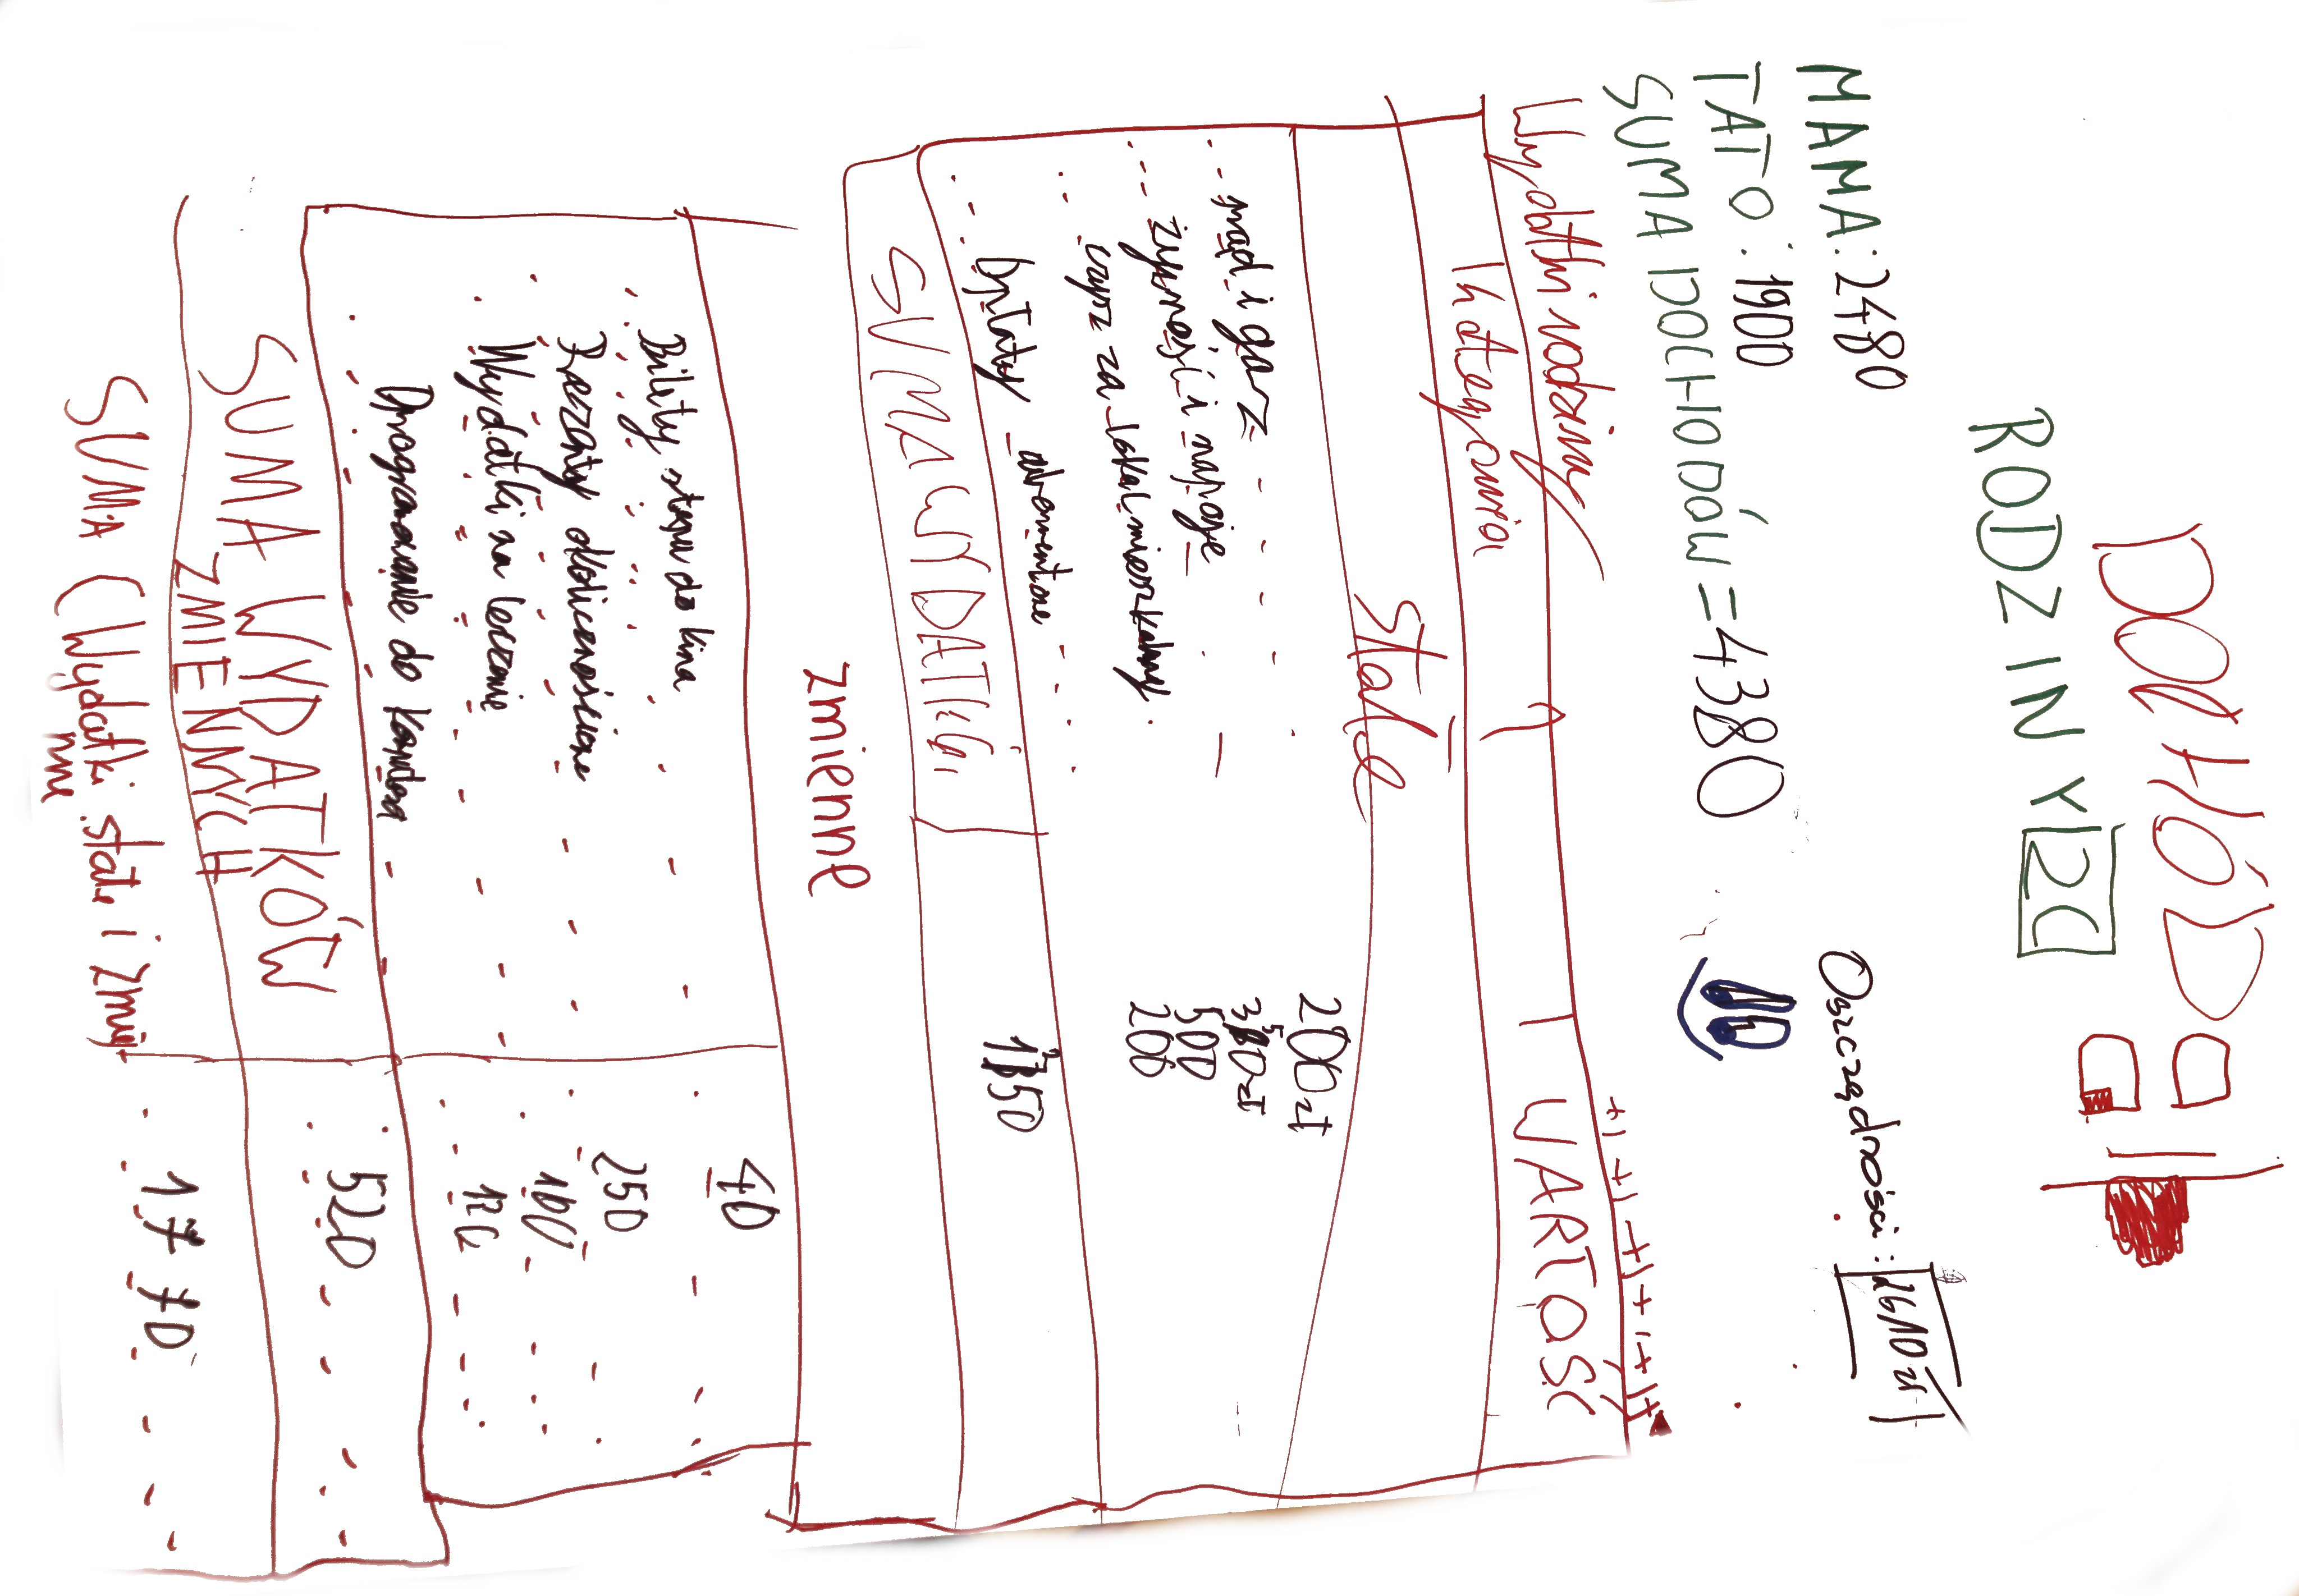 DOCHÓD
RODZINY 2C
MAMA: 2480
TATO: 1900
SUMA DOCHODÓW = 4380
Oszczędności: 2610 zł
Wydatki rodziny
Kategoria WARTOŚĆ
Stałe
prąd i gaz 200 zł
żywność i napoje
czynsz za lokal mieszkalny 500
Opłaty abonentowe 200
SUMA WYDATKÓW
Zmienne
Bilety wstępu do kina 40
Prezenty okolicznościowe 250
Wydatki na leczenie 100
Oprogramowanie do komputera
SUMA WYDATKÓW ZMIENNYCH 520
SUMA (Wydatki stałe i zmienne 1770